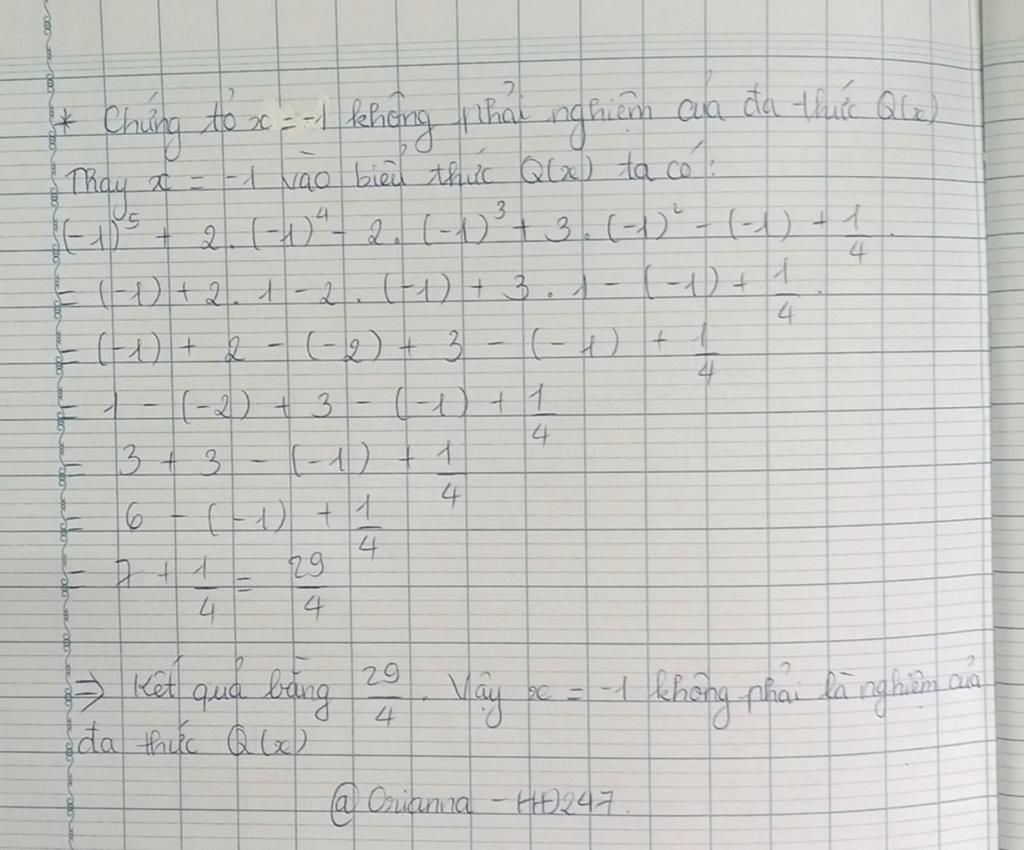 * Chứng tỏ x = -1 không phải nghiệm của đa thức Q(x)
Thay x = -1 vào biểu thức Q(x) ta có:
(-1)⁵ + 2.(-1)⁴ - 2.(-1)³ + 3.(-1)² - (-1) + 1/4.
= (-1) + 2.1 - 2.(-1) + 3.1 - (-1) + 1/4.
= (-1) + 2 - (-2) + 3 - (-1) + 1/4
= 1 - (-2) + 3 - (-1) + 1/4
= 3 + 3 - (-1) + 1/4
= 6 - (-1) + 1/4
= 7 + 1/4 = 29/4
⇒ Kết quả bằng 29/4. Vậy x = -1 không phải là nghiệm của
đa thức Q(x)
@Orianna - HĐ247.